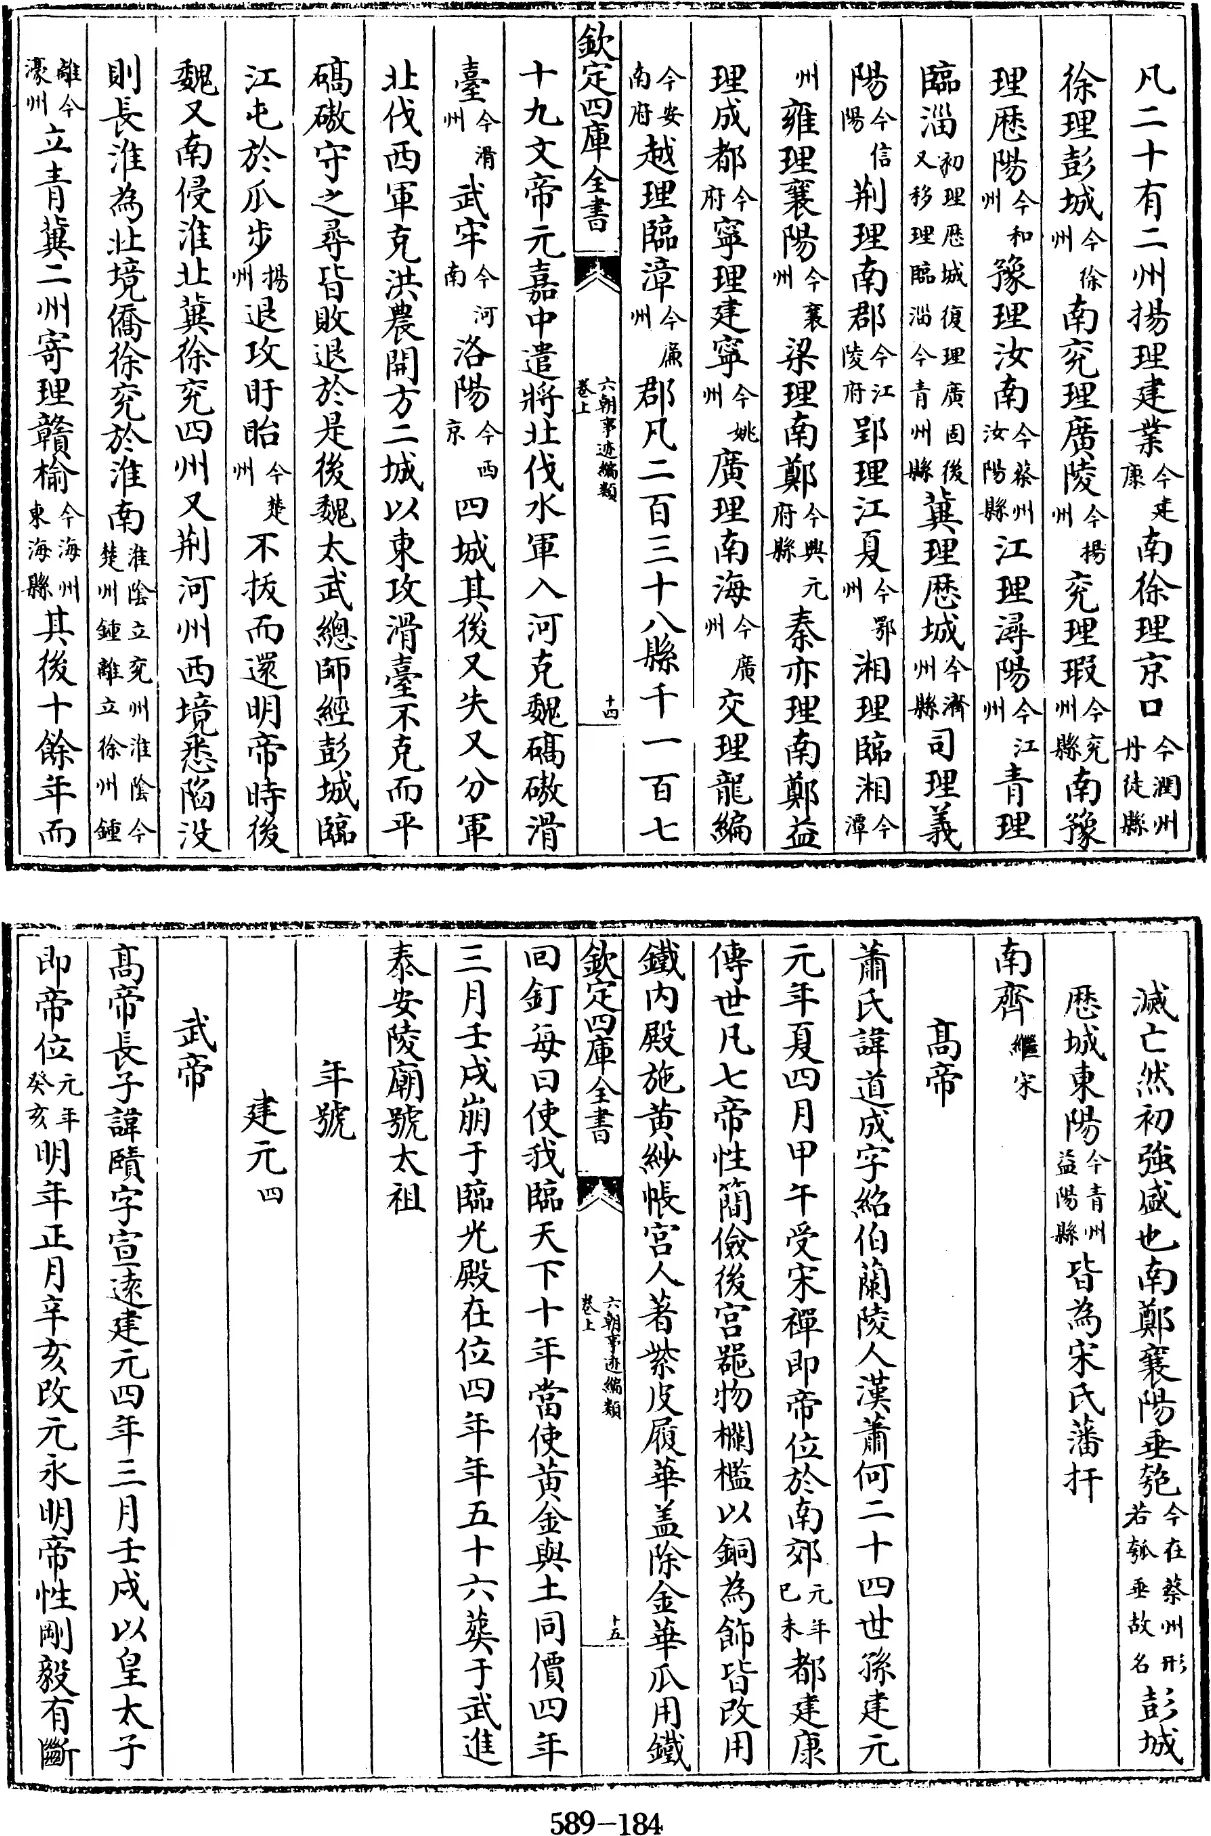 凡二十有二州揚理建業今建康南徐理京口今潤州丹徒縣
徐理彭城今徐州南兖理廣陵今揚州兖理瑕今兖州縣南豫
理歴陽今和州豫理汝南今蔡州汝陽縣江理潯陽今江州青理
臨淄初理歴城復理廣固後又移理臨淄今青州縣冀理歴城今濟州縣司理義
陽今信陽荆理南郡今江陵府郢理江夏今鄂州湘理臨湘今潭
州雍理襄陽今襄州梁理南鄭今興元府縣秦亦理南鄭益
理成都今府寧理建寧今姚州廣理南海今廣州交理龍編
今安南府越理臨漳今廉州郡凡二百三十八縣千一百七
欽定四庫全書 六朝事迹編類 卷上 十四
十九文帝元嘉中遣將北伐水軍入河克魏碻磝滑
臺今滑州武牢今河南洛陽今西京四城其後又失又分軍
北伐西軍克洪農開方二城以東攻滑臺不克而平
碻磝守之尋皆敗退於是後魏太武總師經彭城臨
江屯於瓜步揚州退攻盱眙今楚州不拔而還明帝時後
魏又南侵淮北冀徐兖四州又荆河州西境悉陷没
則長淮為北境僑徐兖於淮南淮陰立兖州淮陰今楚州鍾離立徐州鍾
離今濠州立青冀二州寄理贛榆今海州東海縣其後十餘年而
滅亡然初強盛也南鄭襄陽垂瓠今在蔡州形若瓠垂故名彭城
歴城東陽今青州益陽縣皆為宋氏藩扞
南齊繼宋
高帝
蕭氏諱道成字紹伯蘭陵人漢蕭何二十四世孫建元
元年夏四月甲午受宋禪即帝位於南郊元年己未都建康
傳世凡七帝性簡儉後宫器物欄檻以銅為飾皆改用
鐵内殿施黄紗帳宫人著紫皮履華盖除金華瓜用鐵
欽定四庫全書 六朝事迹編類 卷上 十五
回釘每曰使我臨天下十年當使黄金與土同價四年
三月壬戌崩于臨光殿在位四年年五十六葬于武進
泰安陵廟號太祖
年號
建元四
武帝
高帝長子諱賾字宣逺建元四年三月壬戌以皇太子
即帝位元年癸亥明年正月辛亥改元永明帝性剛毅有斷
589-184